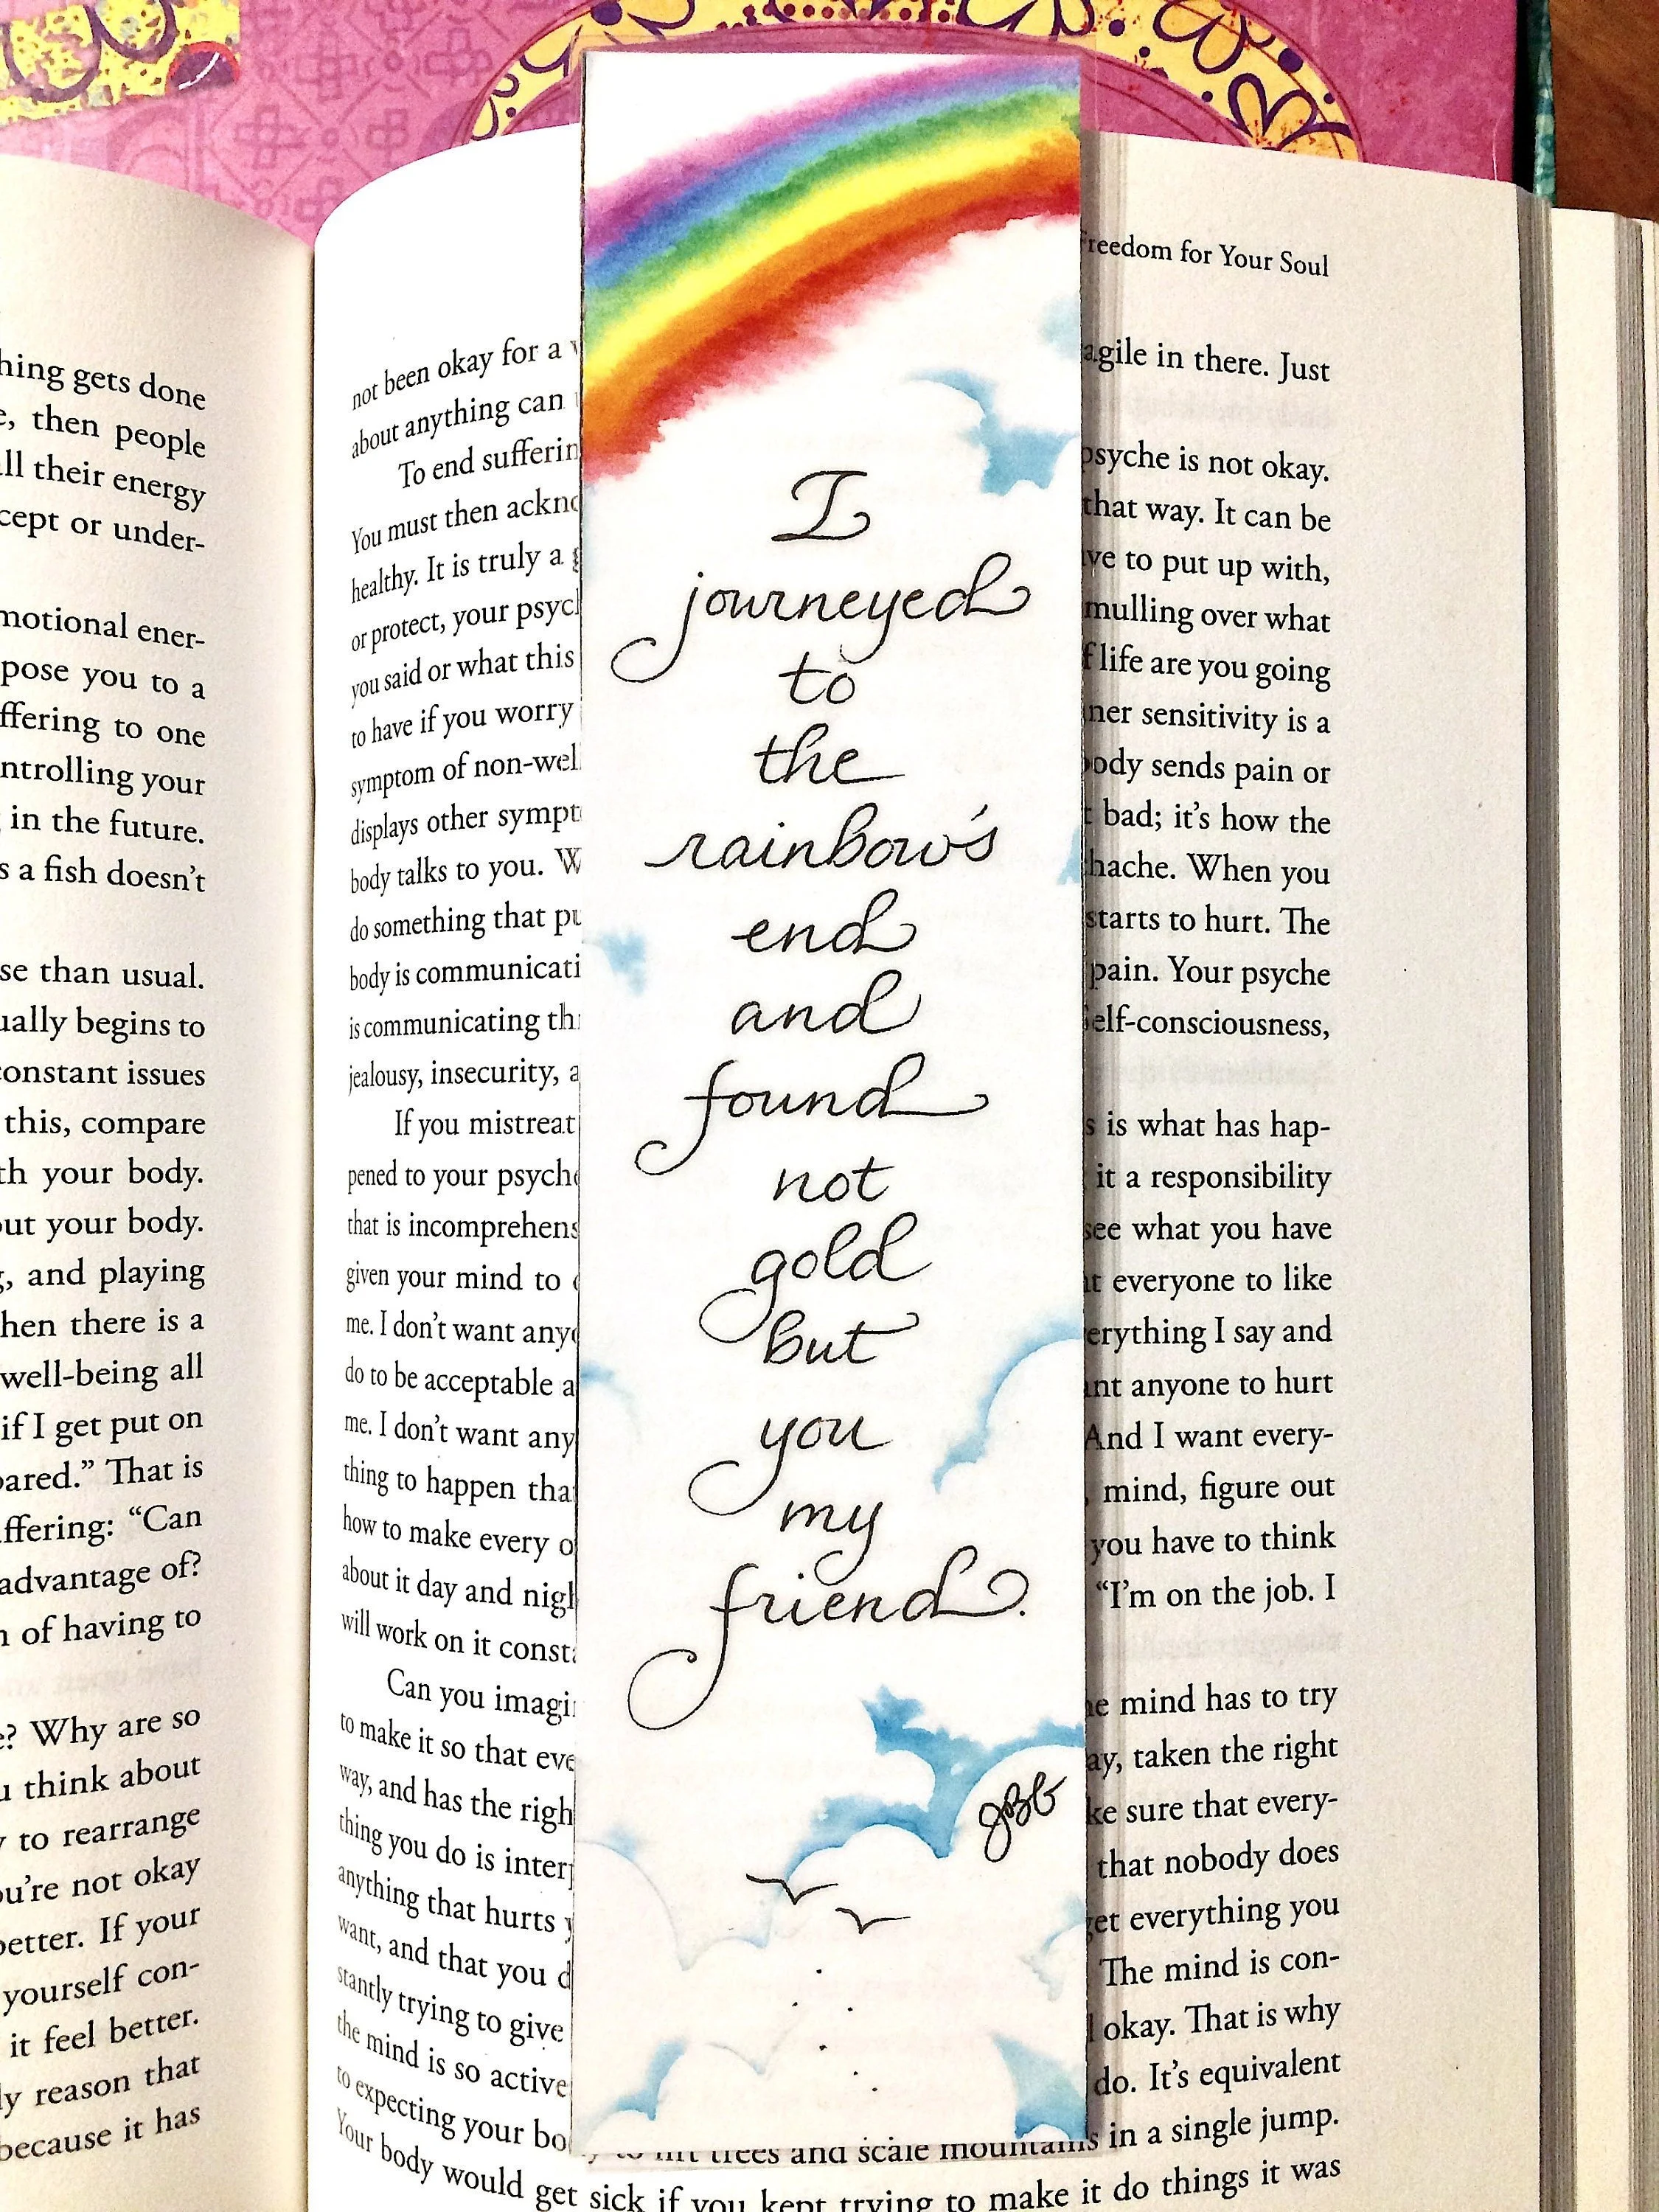 hing gets done
then people
their energy
or under-
ener-
pose you to a
to one
your
in the future.
a fish doesn't
than usual.
begins to
issues
this, compare
your body.
your body.
and playing
there is a
well-being all
if I get put on
That is
"Can
advantage of?
of having to
Why are so
think about
to rearrange
not okay
If your
yourself con-
it feel better.
reason that
because it has
Freedom for Your Soul
not been okay for a
about anything can
To end
You must then
healthy. It is truly a
or protect, your
you said or what this
to have if you worry
symptom of
displays other
body talks to you.
do something that
body is
is communicating
jealousy, insecurity,
If you mistreat
pened to your
that is
given your mind to
me. I don't want
do to be acceptable
me. I don't want any
thing to happen
how to make every
about it day and
will work on it
Can you
to make it so that
way, and has the
thing you do is
anything that hurts
want, and that you
stantly trying to give
the mind is so active
to expecting your
I
journeyed
to
the
rainbow's
end
and
found
not
gold
but
you
my
friend.
JBG
in there. Just
psyche is not okay.
that way. It can be
to put up with,
mulling over what
life are you going
sensitivity is a
body sends pain or
bad; it's how the
When you
starts to hurt. The
pain. Your psyche
self-consciousness,
is what has hap-
it a responsibility
see what you have
everyone to like
I say and
anyone to hurt
And I want every-
mind, figure out
you have to think
"I'm on the job. I
mind has to try
taken the right
sure that every-
that nobody does
everything you
The mind is con-
okay. That is why
do. It's equivalent
to lift trees and scale mountains in a single jump.
Your body would get sick if you kept trying to make it do things it was